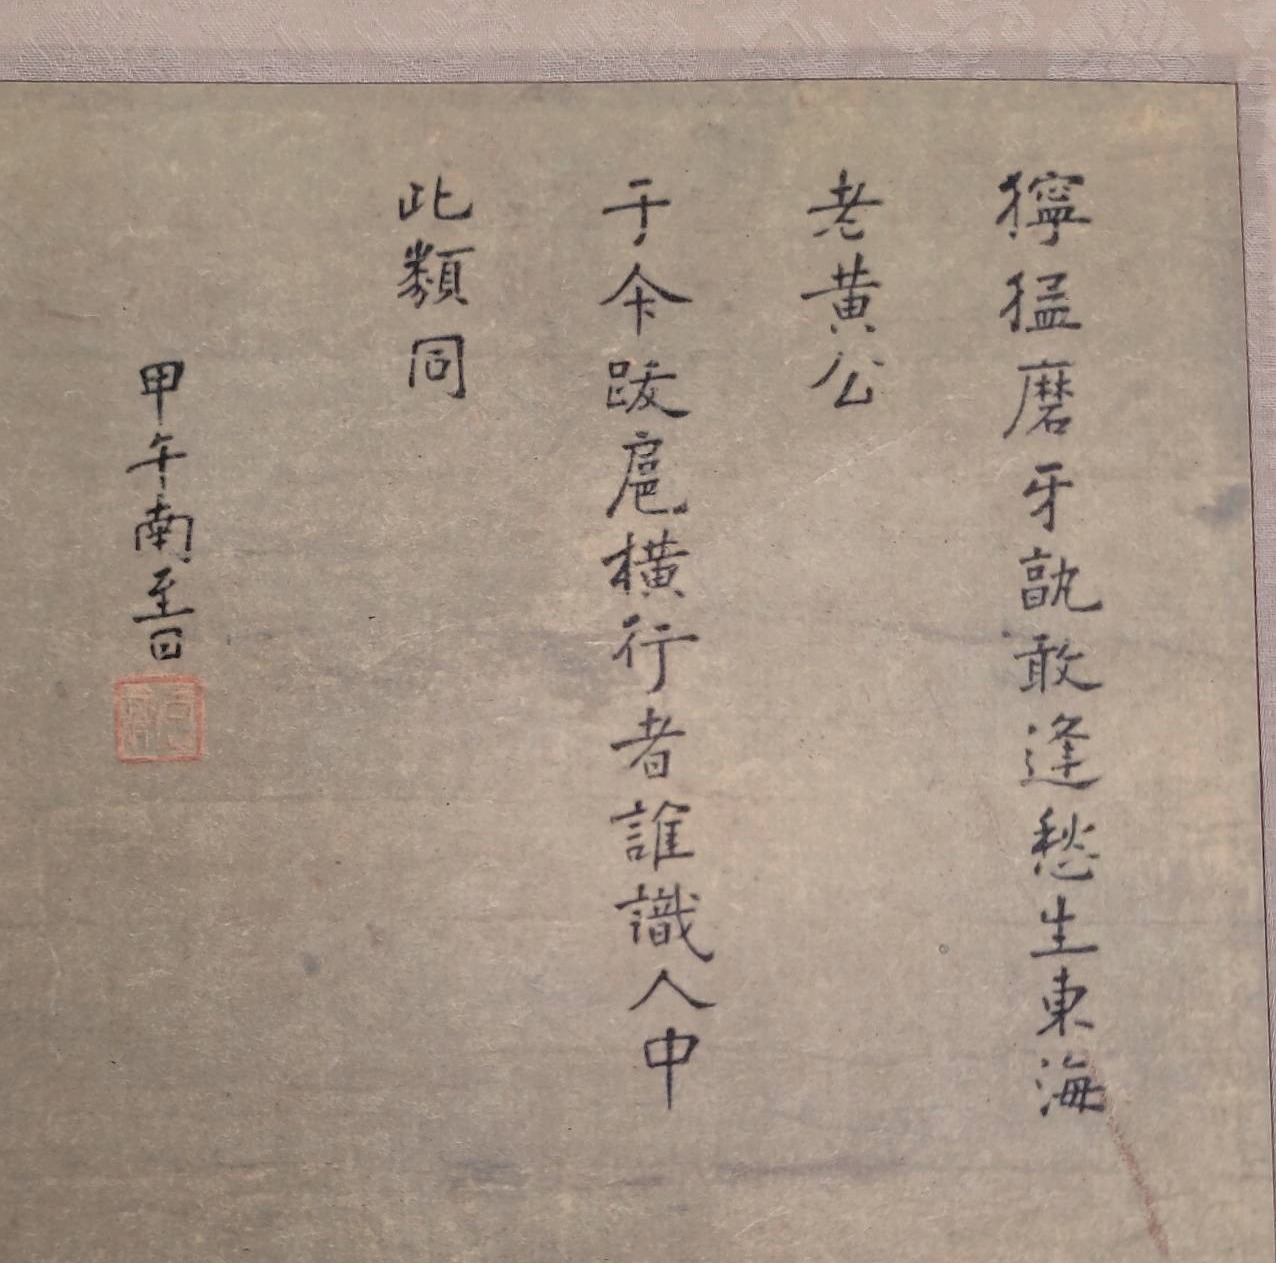 獰猛磨牙孰敢逢愁生東海
老黄公
于今跋扈橫行者誰識人中
此類同
甲午南至日